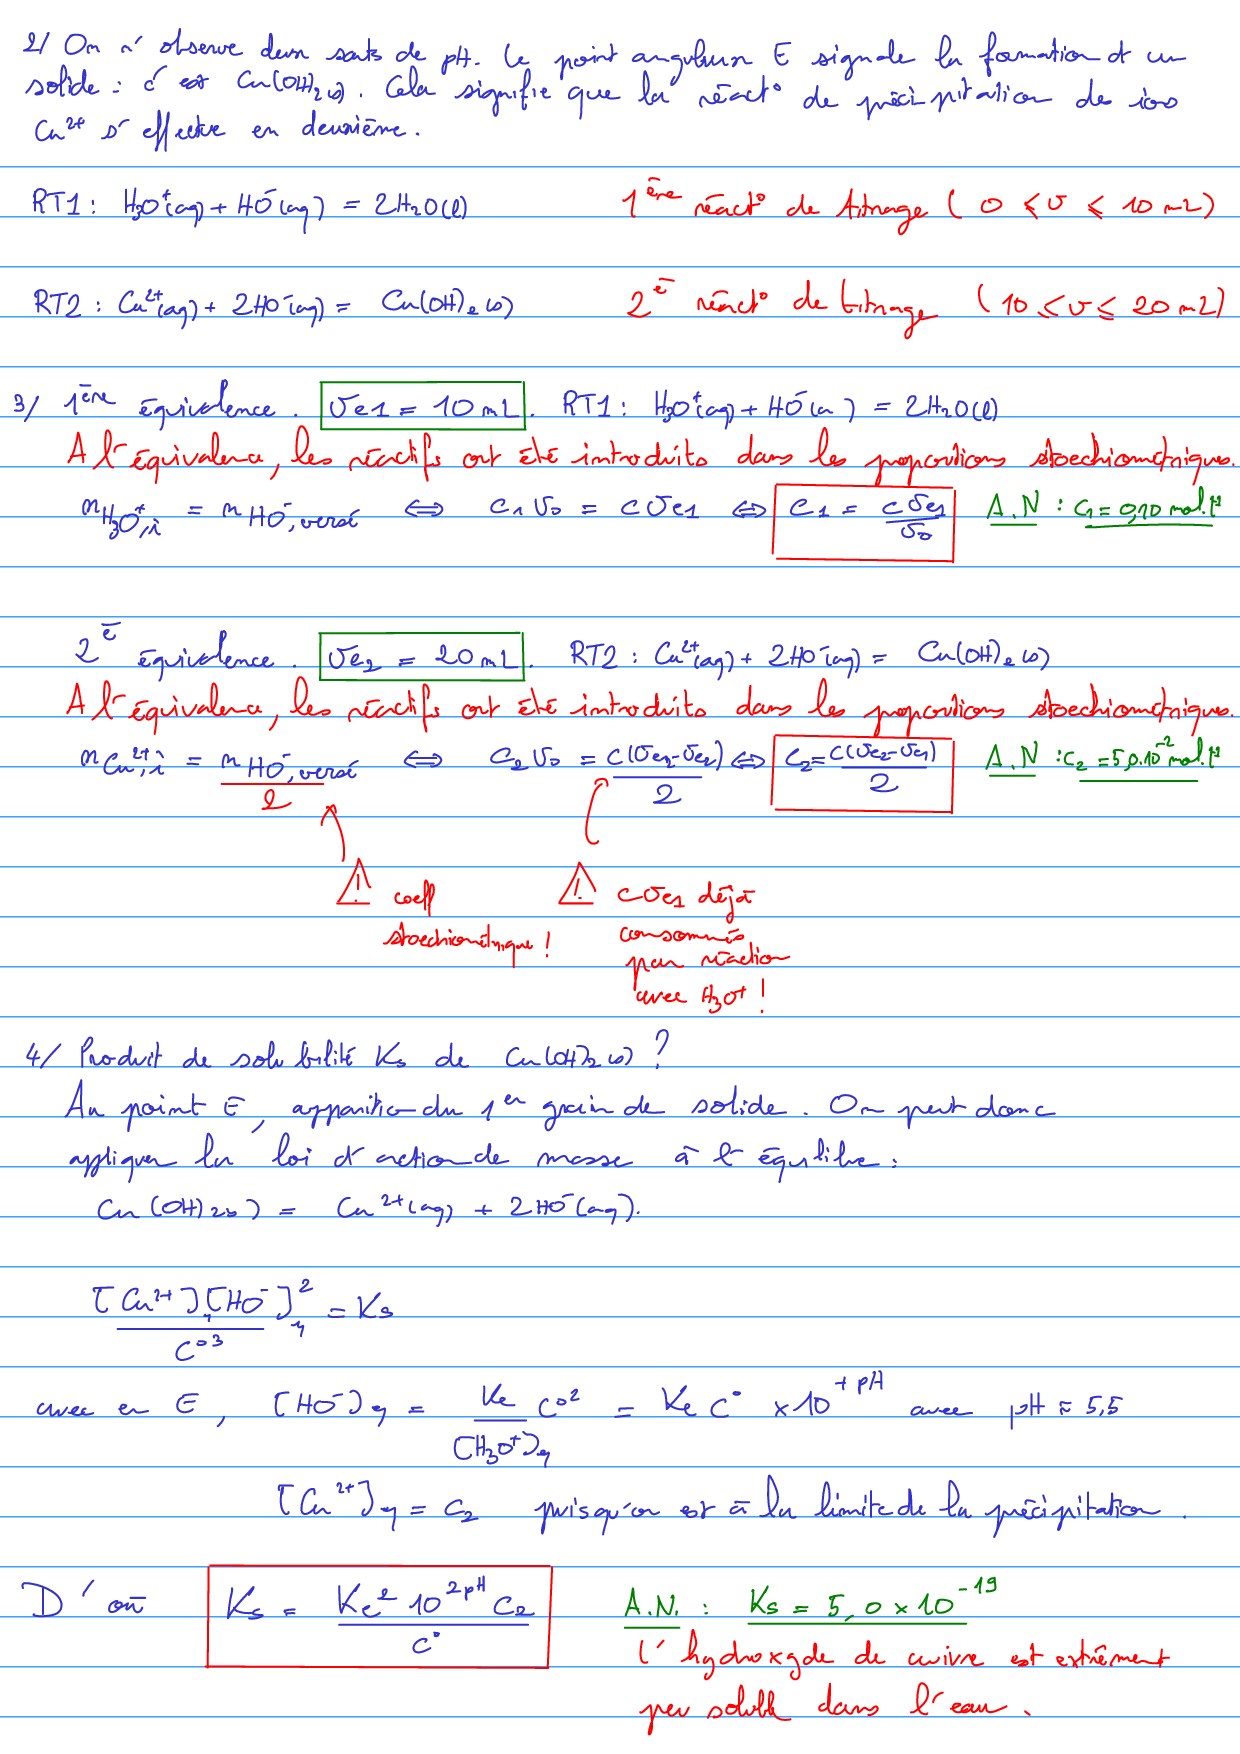 2/ On n'observe deux sauts de pH. Le point anguleux E signale la formation d'un
solide : c'est Cu(OH)2(s). Cela signifie que la réact° de précipitation des ions
Cu²⁺ s'effectue en deuxième.
RT1 : H₃O⁺(aq) + HO⁻(aq) = 2H₂O(l) 1ère réact° de titrage ( 0 ≤ v ≤ 10 mL)
RT2 : Cu²⁺(aq) + 2HO⁻(aq) = Cu(OH)₂(s) 2ē réact° de titrage (10 ≤ v ≤ 20 mL)
3/ 1ère équivalence. Ve1 = 10 mL. RT1 : H₃O⁺(aq) + HO⁻(a ) = 2H₂O(l)
A l'équivalence, les réactifs ont été introduits dans les proportions stoechiométriques.
n H₃O⁺,i = n HO⁻,versé ⇔ C₁V₀ = CVe1 ⇔ C₁ = CVe1/V₀ A.N : C₁ = 0,10 mol.l⁻¹
2ē équivalence. Ve2 = 20 mL. RT2 : Cu²⁺(aq) + 2HO⁻(aq) = Cu(OH)₂(s)
A l'équivalence, les réactifs ont été introduits dans les proportions stoechiométriques.
n Cu²⁺,i = n HO⁻,versé/2 ⇔ C₂V₀ = C(Ve2-Ve2)/2 ⇔ C₂ = C(Ve2-Ve1)/2 A.N : C₂ = 5,0.10⁻² mol.l⁻¹
⚠ coeff
stoechiométrique !
⚠ CVe1 déjà
consommés
par réaction
avec H₃O⁺ !
4/ Produit de solubilité Ks de Cu(OH)₂(s) ?
Au point E, apparition du 1er grain de solide. On peut donc
appliquer la loi d'action de masse à l'équilibre :
Cu(OH)₂(s) = Cu²⁺(aq) + 2HO⁻(aq).
[Cu²⁺]éq[HO⁻]²éq/C°³ = Ks
avec en E, [HO⁻]éq = Ke/[H₃O⁺]éq C°² = Ke C° × 10⁺ᵖᴴ avec pH ≈ 5,5
[Cu²⁺]éq = C₂ puisqu'on est à la limite de la précipitation.
D'où Ks = Ke² 10²ᵖᴴ C₂/C° A.N. : Ks = 5,0 × 10⁻¹⁹
L'hydroxyde de cuivre est extrêment
peu soluble dans l'eau.